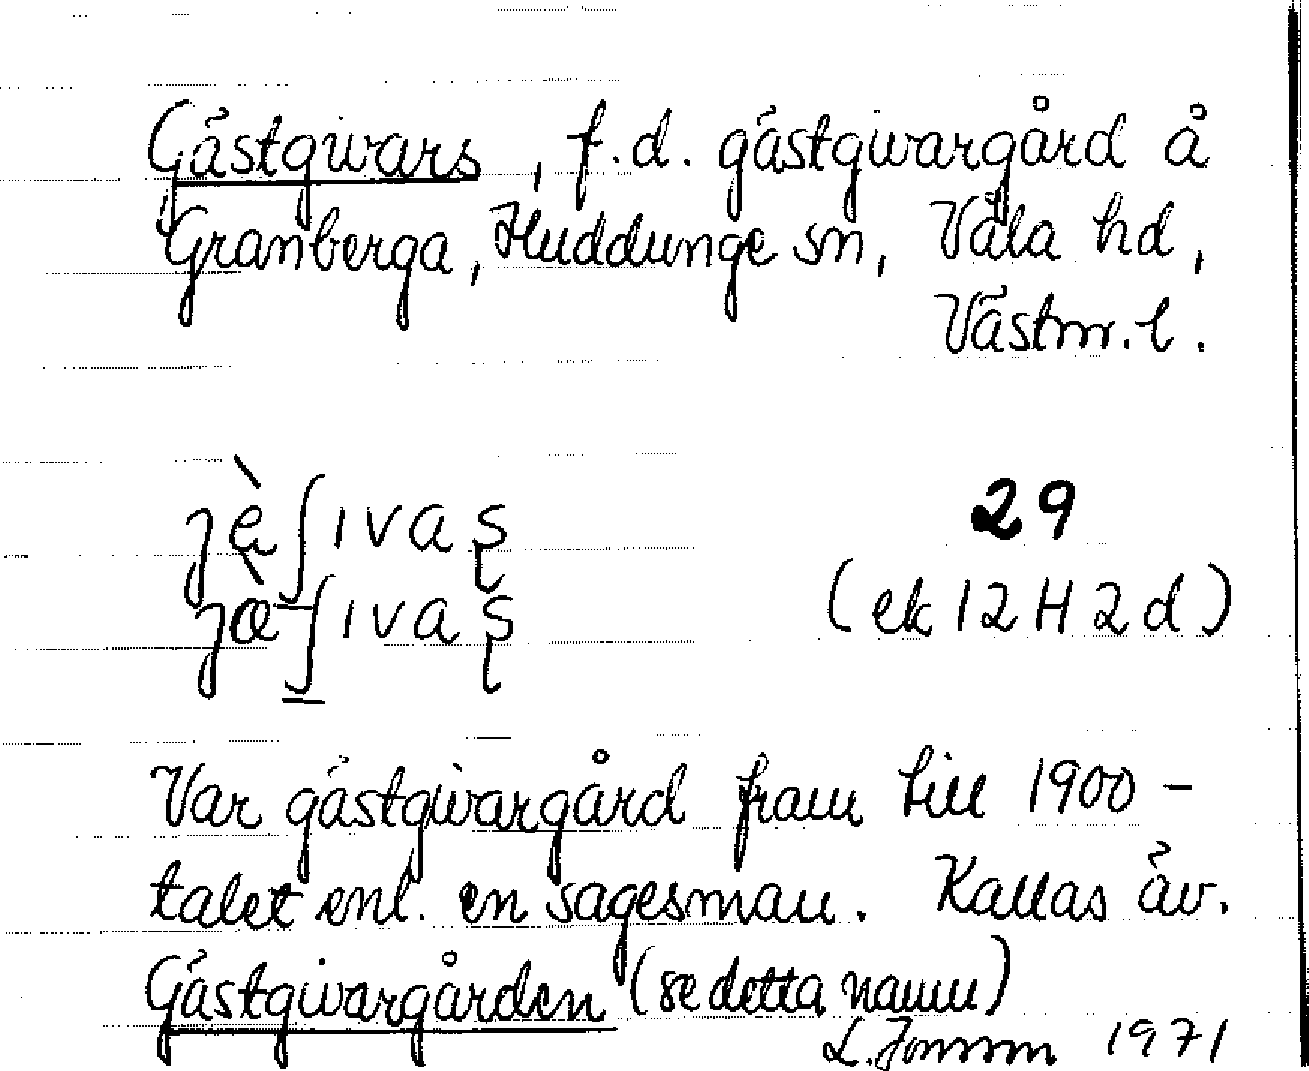 Gästgivars, f.d. gästgivargård å
Granberga, Huddunge sn, Våla hd,
Västm. l.
29
(ek 12 H 2 d)
Var gästgivargård fram till 1900-
talet enl. en sagesman. Kallas äv.
Gästgivargården (se detta namn)
L. Jonsson 1971